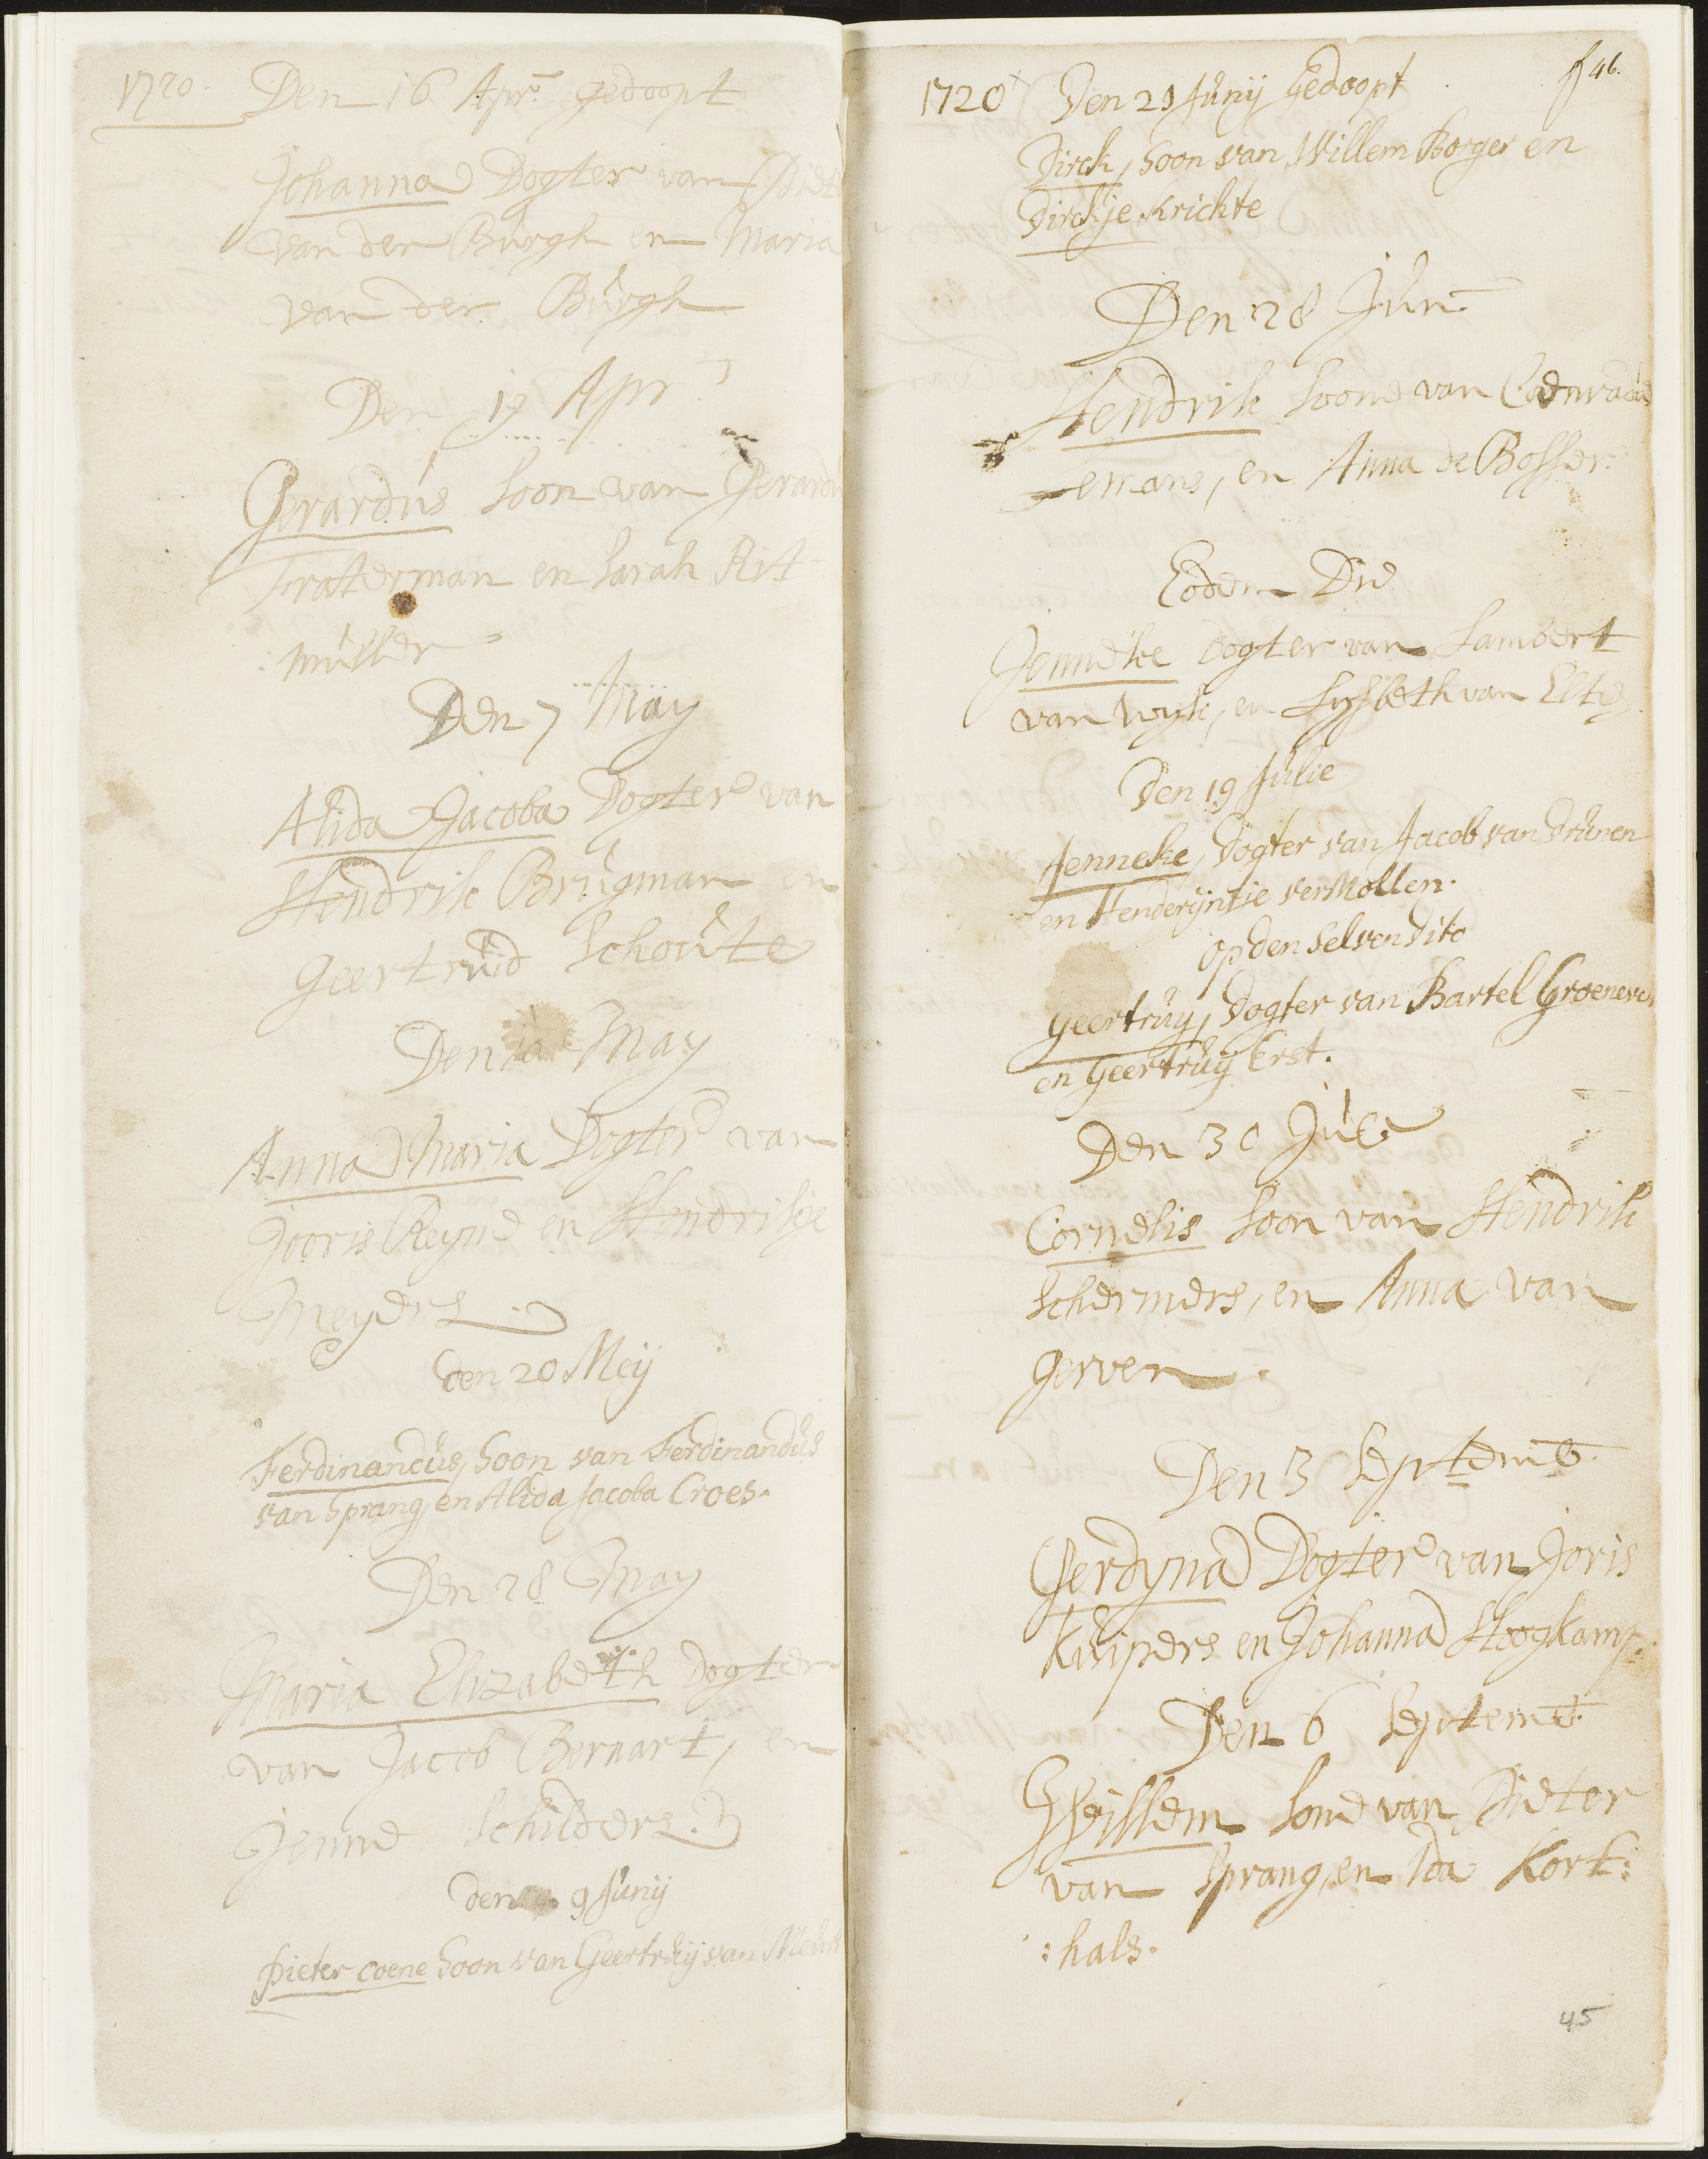 1720. Den 16 Apr. gedoopt
Johanna Dogter van Piet
van der Burgh en Maria
van der Burgh
Den 19 Apr
Gerardus Soon van Gerardu
Fratterman en Sarah Rit
: muller
Den 7 May
Alida Jacoba Dogter van
Hendrik Brugman en
Geertruid Schoute
Den May
Anna Maria Dogter van
Jooris Reyne en Hendrikje
Meyers.
den 20 Meij
Ferdinandus, Soon van Ferdinandus
van Sprang, en Alida Jacoba Croes.
Den 28 May
Maria Elizabeth Dogter
van Jacob Bernart, en
Jenne Schilders.
den 9 Junij
Pieter Coene Soon van Geertruij van Meur
f 46.
1720 Den 21 Junij Gedoopt
Dirck, Soon van Willem Borger en
Dirckje Krichte
Den 28 Jun.
Hendrik Soone van Coenraad
emans, en Anna de Bosser.
Eodem Die
Jenneke Dogter van Lambert
van Wyk, en Lysbeth van Elts
Den 19 Julie
Jenneke, Dogter van Jacob van Drunen
en Henderijntje Vermollen.
Op den Selven Dito
Geertruy, Dogter van Bartel Groenev
en Geertruij Erst.
Den 30 Jule
Cornelis Soon van Hendrik
Schermers, en Anna van
Gerven.
Den 3 Septemb.
Gerdyna Dogter van Joris
Kuipers en Johanna Hoogkamp.
Den 6 Septemb.
Willem Sone van Pieter
van Sprang, en Ida Kort:
: hals.
45